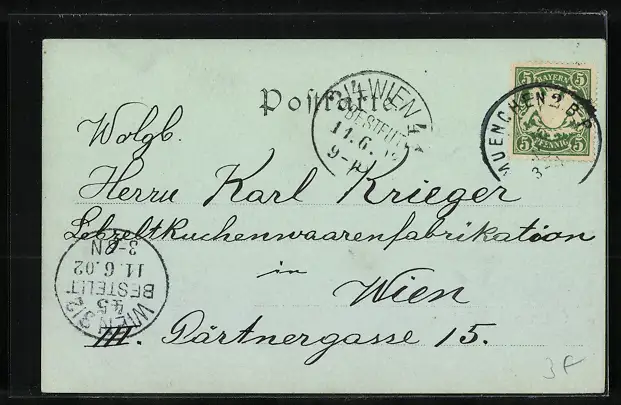 Postkarte
2/4 WIEN 4
BESTELLT
11.6.
9-
5 BAYERN 5
5 PFENNIG 5
MUENCHEN 2 B.P.
3-4
Wolgb.
Herrn Karl Krieger
Lebzeltkuchenwaarenfabrikation
in
Wien
III. Pärtnergasse 15.
WIEN 3/2
45
BESTELLT
11.6.02
3-6N
3F